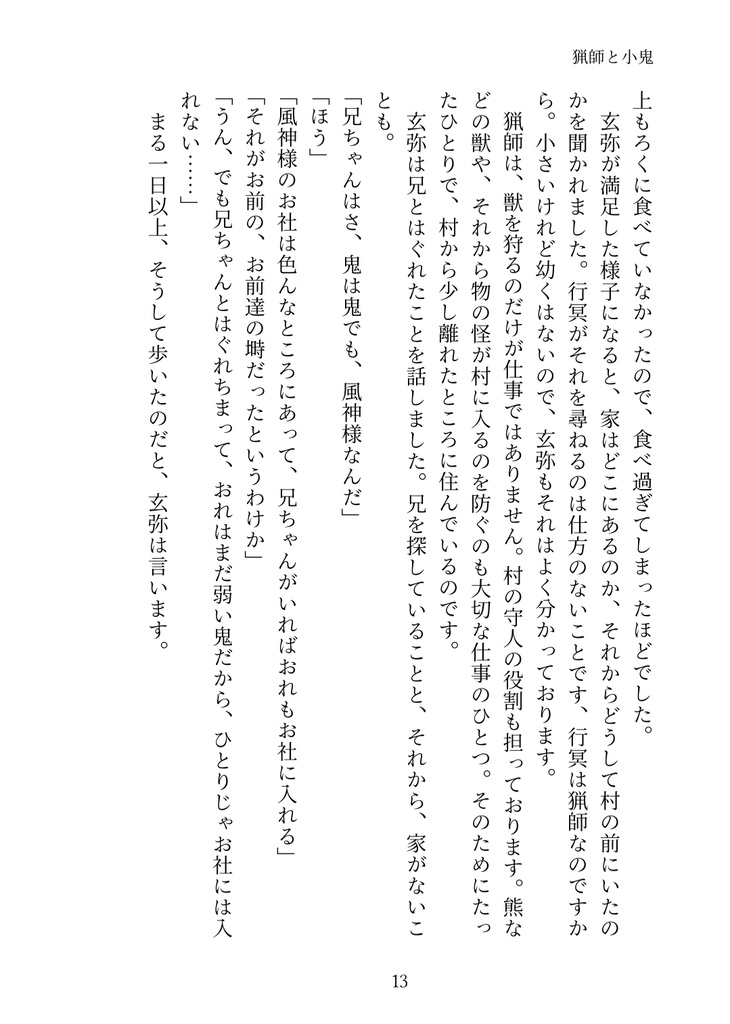 猟師と小鬼
上もろくに食べていなかったので、食べ過ぎてしまったほどでした。
玄弥が満足した様子になると、家はどこにあるのか、それからどうして村の前にいたの
かを聞かれました。行冥がそれを尋ねるのは仕方のないことです、行冥は猟師なのですか
ら。小さいけれど幼くはないので、玄弥もそれはよく分かっております。
猟師は、獣を狩るのだけが仕事ではありません。村の守人の役割も担っております。熊な
どの獣や、それから物の怪が村に入るのを防ぐのも大切な仕事のひとつ。そのためにたっ
たひとりで、村から少し離れたところに住んでいるのです。
玄弥は兄とはぐれたことを話しました。兄を探していることと、それから、家がないこ
とも。
「兄ちゃんはさ、鬼は鬼でも、風神様なんだ」
「ほう」
「風神様のお社は色んなところにあって、兄ちゃんがいればおれもお社に入れる」
「それがお前の、お前達の塒だったというわけか」
「うん、でも兄ちゃんとはぐれちまって、おれはまだ弱い鬼だから、ひとりじゃお社には入
れない……」
まる一日以上、そうして歩いたのだと、玄弥は言います。
13